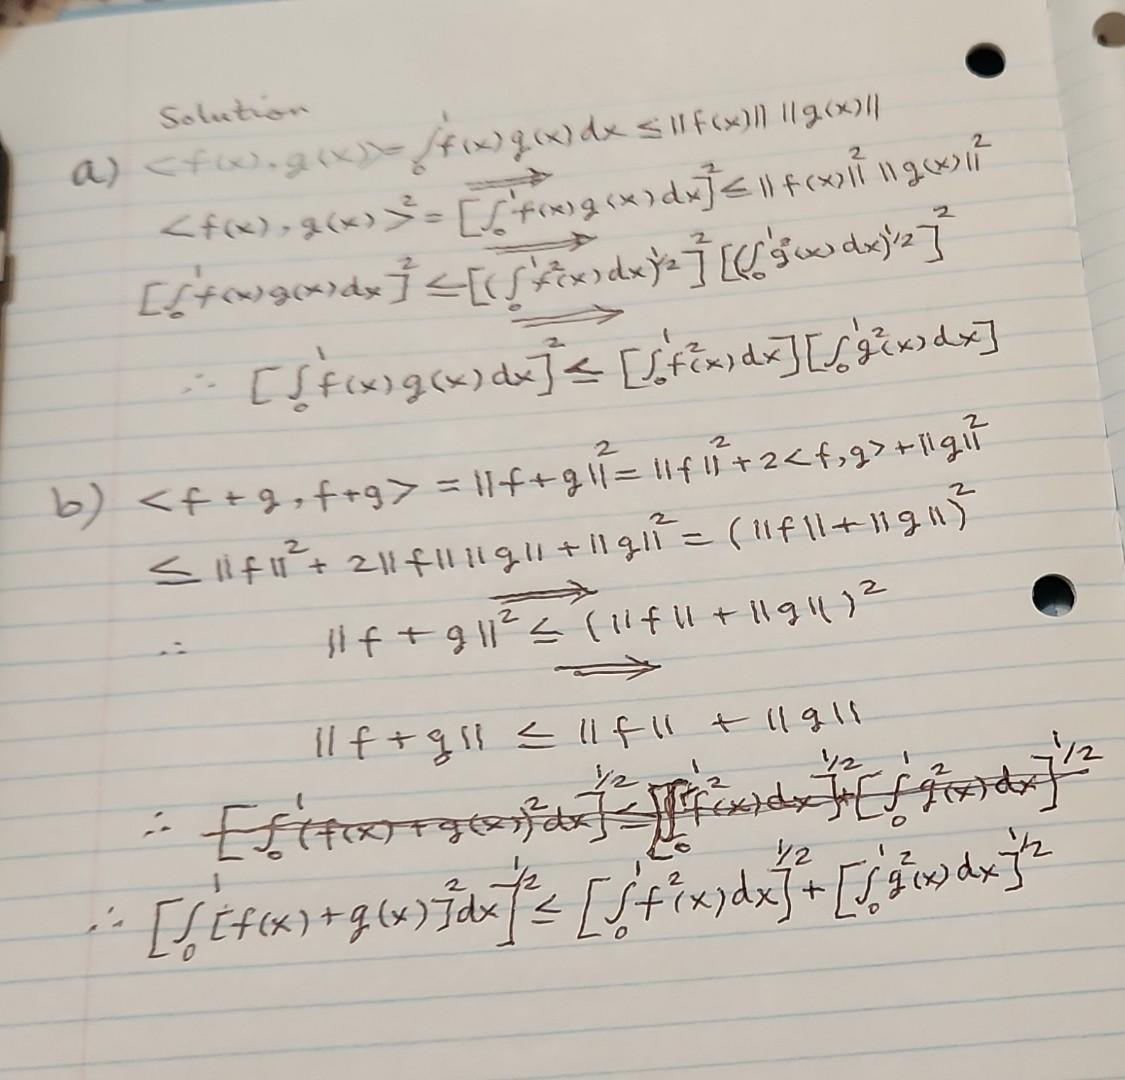 Solution
a) <f(x), g(x)> = ∫₀¹ f(x) g(x) dx ≤ ||f(x)|| ||g(x)||
⟹
<f(x), g(x)>² = [∫₀¹ f(x) g(x) dx]² ≤ ||f(x)||² ||g(x)||²
⟹
[∫₀¹ f(x) g(x) dx]² ≤ [(∫₀¹ f²(x) dx)^1/2]² [(∫₀¹ g²(x) dx)^1/2]²
⟹
∴ [∫₀¹ f(x) g(x) dx]² ≤ [∫₀¹ f²(x) dx] [∫₀¹ g²(x) dx]
b) <f + g, f + g> = ||f + g||² = ||f||² + 2<f, g> + ||g||²
≤ ||f||² + 2||f|| ||g|| + ||g||² = (||f|| + ||g||)²
⟹
∴ ||f + g||² ≤ (||f|| + ||g||)²
⟹
||f + g|| ≤ ||f|| + ||g||
∴ [∫₀¹ (f(x) + g(x))² dx]^1/2 ≤ [∫₀¹ f²(x) dx]^1/2 + [∫₀¹ g²(x) dx]^1/2
∴ [∫₀¹ [f(x) + g(x)]² dx]^1/2 ≤ [∫₀¹ f²(x) dx]^1/2 + [∫₀¹ g²(x) dx]^1/2